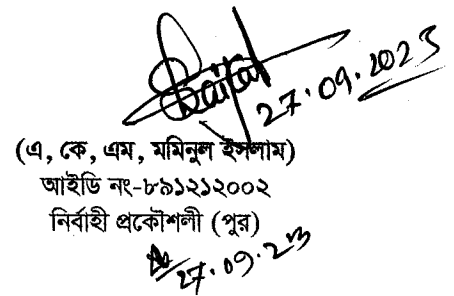 27.09.2023
(এ, কে, এম, মমিনুল ইসলাম)
আইডি নং-৮৯১২১২০০২
নির্বাহী প্রকৌশলী (পুর)
27.09.23